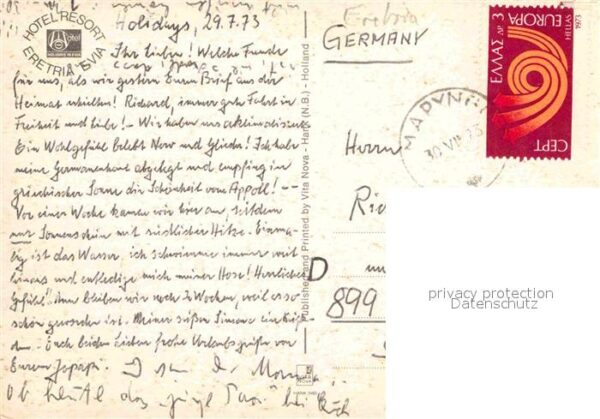 HOTEL RESORT
ERETRIA EVIA
hotel
Holidays, 29.7.73
Ihr Lieben! Welche Freude
für uns, als wir gestern Euren Brief aus der
Heimat erhielten! Richard, immer gute Fahrt in
Freiheit und Liebe! - Wir haben uns akklimatisiert
Ein Wohlgefühl belebt Nerv und Glieder! Ich habe
meine Germanenhaut abgelegt und empfing in
griechischer Sonne die Schönheit vom Apoll! --
Vor einer Woche kamen wir hier an, seitdem
nur Sonnenschein mit südlicher Hitze. Einma-
lig ist das Wasser, ich schwimme immer weit
hinaus und entledige mich meiner Hose! Herrliches
Gefühl! Nun bleiben wir noch 2 Wochen, weil es so
schön geworden ist. Meiner süßen Simone ein
Euch beiden Lieben frohe Urlaubsgrüße von
Eurem
Ob heute das bei Euch
Published and Printed by Vita Nova - Hank (N.B.) - Holland
Eretria
GERMANY
ΕΛΛΑΣ ΔΡ 3
EUROPA
HELLAS
1973
CEPT
30 VII 73
Herrn
Ri
D
899
privacy protection
Datenschutz